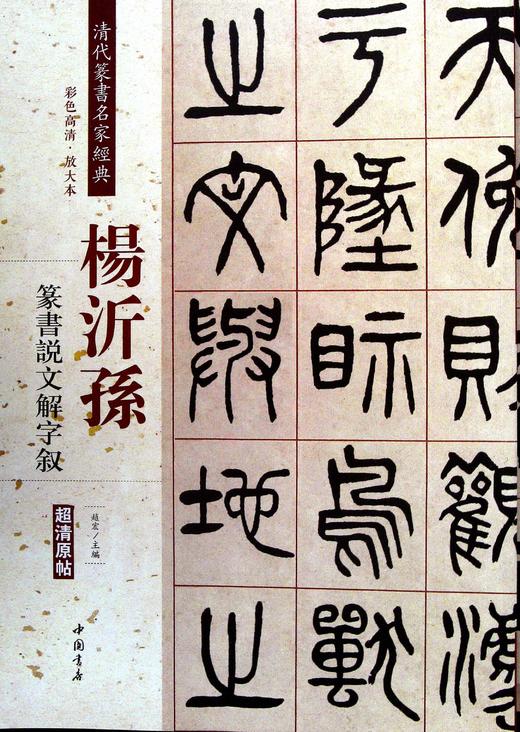 清代篆書名家經典
彩色高清·放大本
楊沂孫
篆書説文解字叙
趙宏／主編
超清原帖
中国書店
天 則觀灋
于墬眡鳥獸
之文與地之